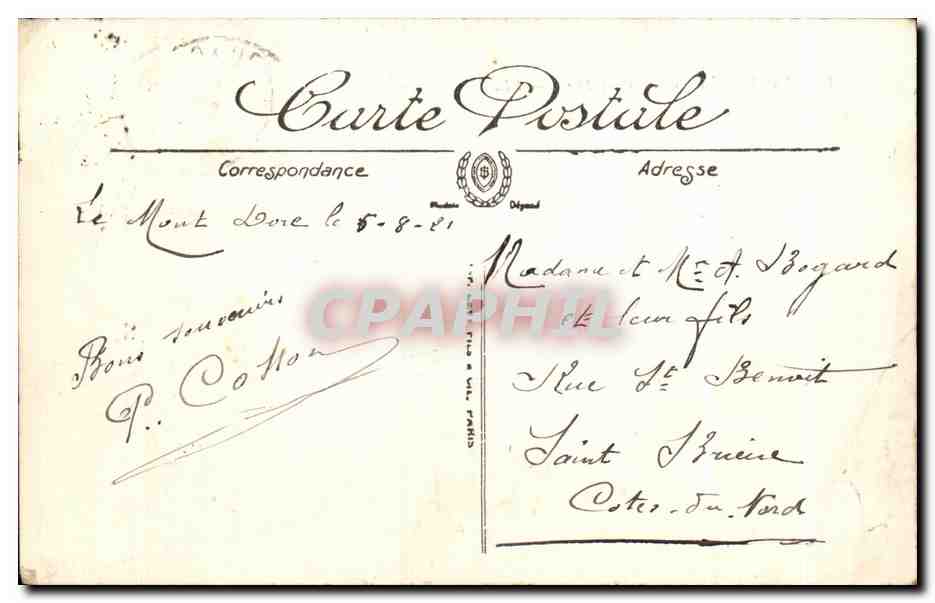 Carte Postale
Correspondance
Adresse
Le Mont Dore le 5-8-21
Bons souvenirs
P. Cotton
Madame et Mr A. Bogard
et leur fils
Rue St Benoit
Saint Brieuc
Cotes-du-Nord
FILS & CIE, PARIS
CPAPHIL